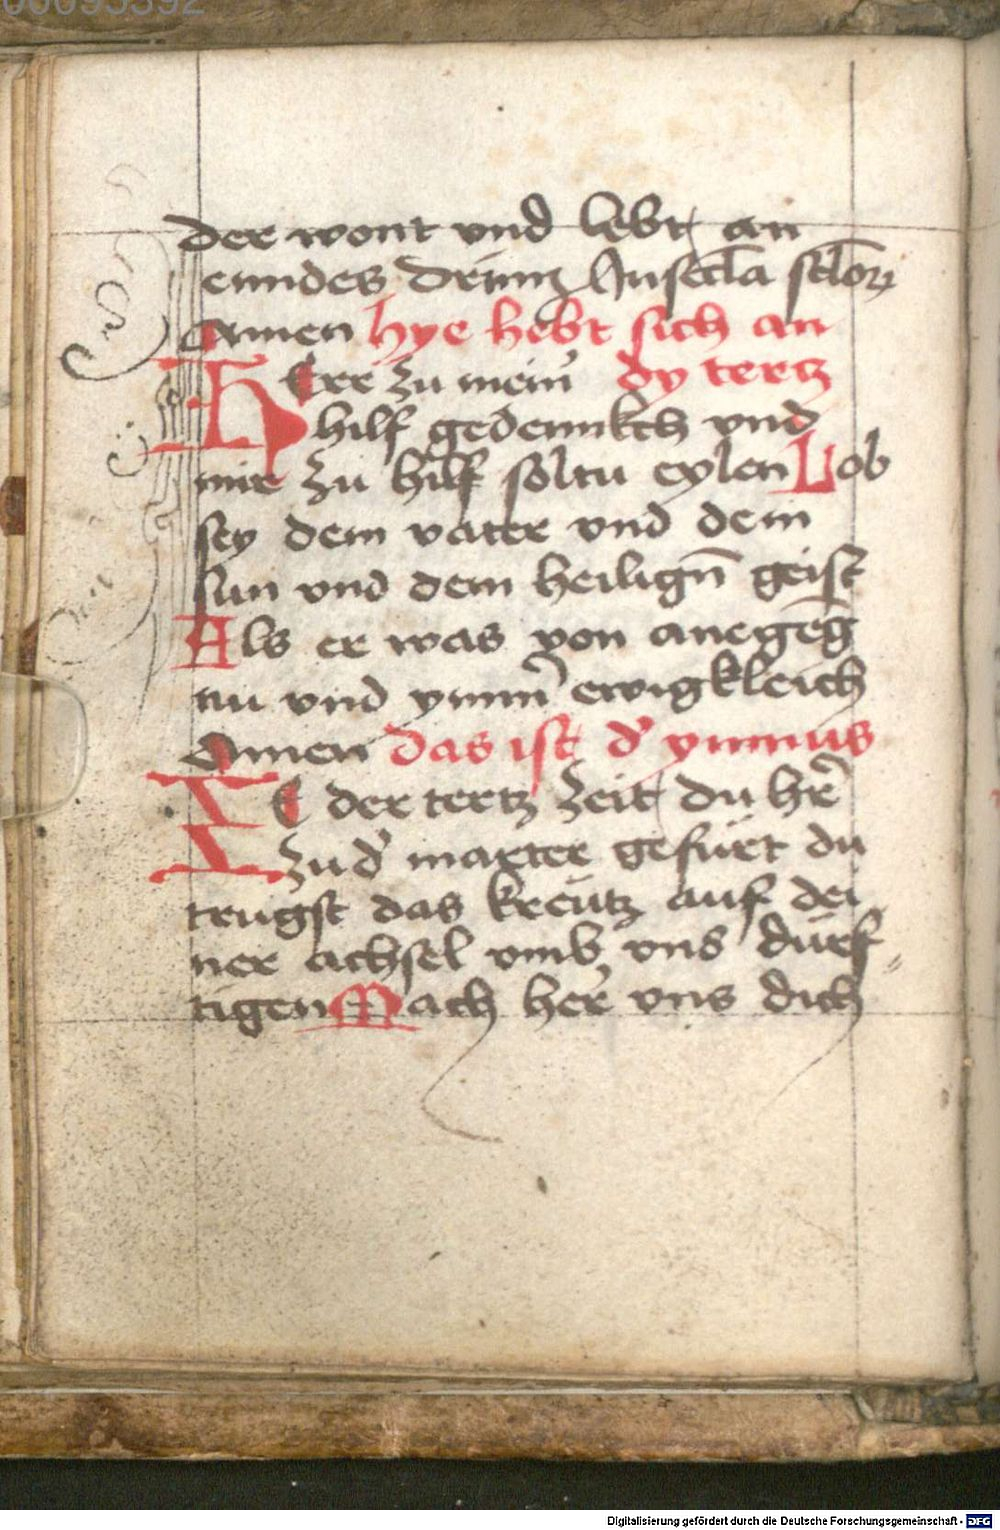 der wont vnd lebt an
enndes drinnz Jnsecl̄a sc̄loꝝ
Amen hye hebt sich an
HErr zu mein̄ dy tertz
hilf gedennkch vnd
mir zu hilf soltu eylen Lob
sey dem vater vnd dem
sun vnd dem heiligñ geist
Als er was von anegēg
nu vnd ymm̄ ewigkleich
Amen das ist d' ymnus
ZE der tertz zeit du hr̄
zu d' marter gefürt du
trugst das kreütz auf dei
ner achsel vmb vns dürf
tigen Mach her̄ vns dich
Digitalisierung gefördert durch die Deutsche Forschungsgemeinschaft - DFG